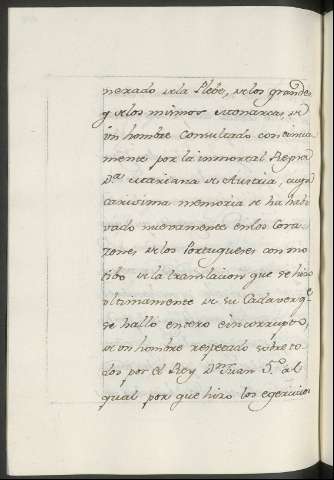 nerado de la Plebe, de los grandes
y de los mismos Monarcas, de
un hombre Consultado continua
mente por la inmortal Reyna
D.ª Mariana de Austria, cuya
carissima memoria se ha habi
vado nuevamente en los Cora
zones de los Portugueses con mo
tibo de la translacion que se hizo
ultimamente de su Cadaver q.e
se halló entero è incorrupto,
de un hombre respetado sobre to
dos por el Rey D.n Juan 5.º al
qual por que hizo los egercicios